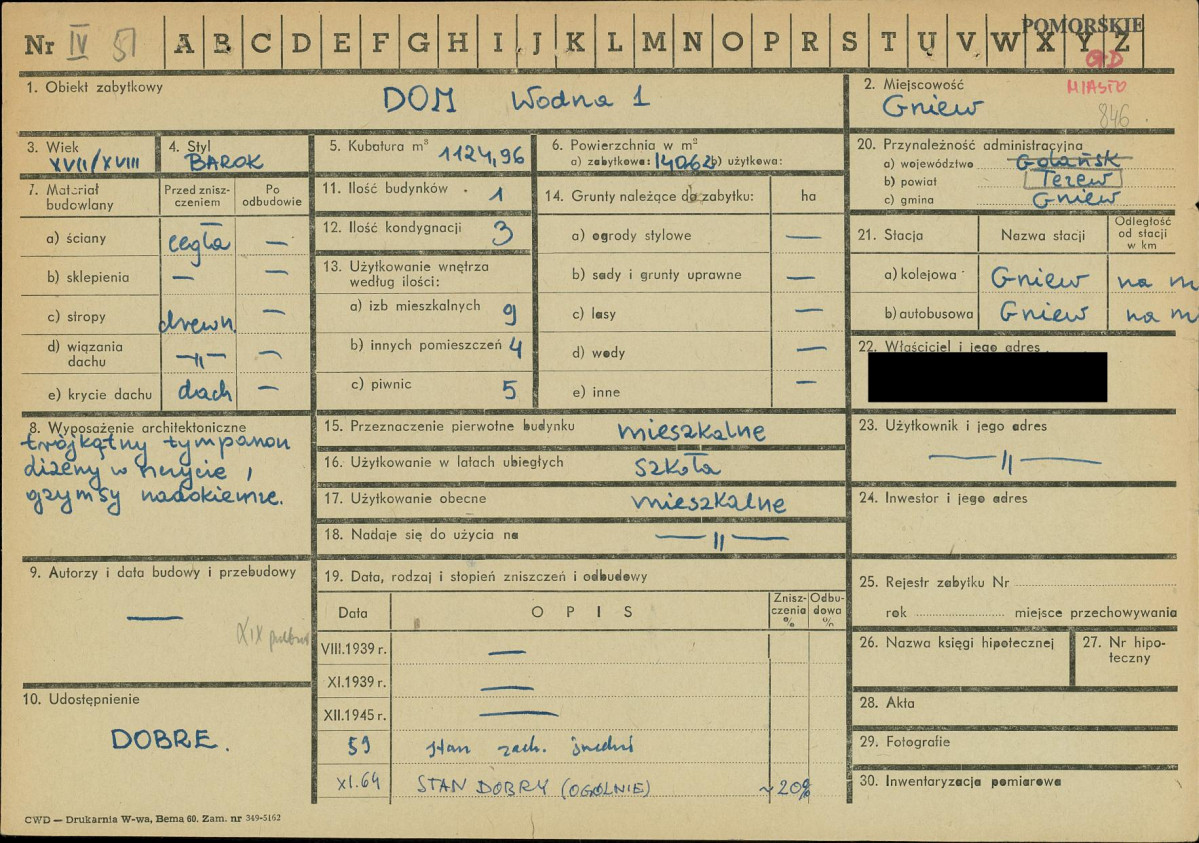 POMORSKIE
Nr IV 51 A B C D E F G H I J K L M N O P R S T U V W X Y Z
MIASTO
846
1. Obiekt zabytkowy
DOM Wodna 1
2. Miejscowość
Gniew
3. Wiek
XVII/XVIII
4. Styl
BAROK
5. Kubatura m³ 1124,96
6. Powierzchnia w m²
a) zabytkowa: 14062 b) użytkowa:
7. Materiał budowlany
Przed zniszczeniem
Po odbudowie
a) ściany cegła —
b) sklepienia — —
c) stropy drewn. —
d) wiązania dachu —„— —
e) krycie dachu dach —
8. Wyposażenie architektoniczne
trójkątny tympanon
w
gzymsy nadokienne.
9. Autorzy i data budowy i przebudowy
—
XIX
10. Udostępnienie
DOBRE.
11. Ilość budynków 1
12. Ilość kondygnacji 3
13. Użytkowanie wnętrza
według ilości:
a) izb mieszkalnych 9
b) innych pomieszczeń 4
c) piwnic 5
14. Grunty należące do zabytku: ha
a) ogrody stylowe —
b) sady i grunty uprawne —
c) lasy —
d) wody —
e) inne —
15. Przeznaczenie pierwotne budynku mieszkalne
16. Użytkowanie w latach ubiegłych szkoła
17. Użytkowanie obecne mieszkalne
18. Nadaje się do użycia na —„—
19. Data, rodzaj i stopień zniszczeń i odbudowy
Data OPIS Zniszczenia % Odbudowa %
VIII.1939 r. —
XI.1939 r. —
XII.1945 r. —
59 stan zach. średni
XI.64 STAN DOBRY (OGÓLNIE) ~20%
20. Przynależność administracyjna
a) województwo Gdańsk
b) powiat Tczew
c) gmina Gniew
21. Stacja
Nazwa stacji
Odległość
od stacji
w km
a) kolejowa Gniew na m
b) autobusowa Gniew na m
22. Właściciel i jego adres
23. Użytkownik i jego adres
—„—
24. Inwestor i jego adres
25. Rejestr zabytku Nr
rok miejsce przechowywania
26. Nazwa księgi hipotecznej
27. Nr hipo-
teczny
28. Akta
29. Fotografie
30. Inwentaryzacja pomiarowa
CWD — Drukarnia W-wa, Bema 60. Zam. nr 349-5162